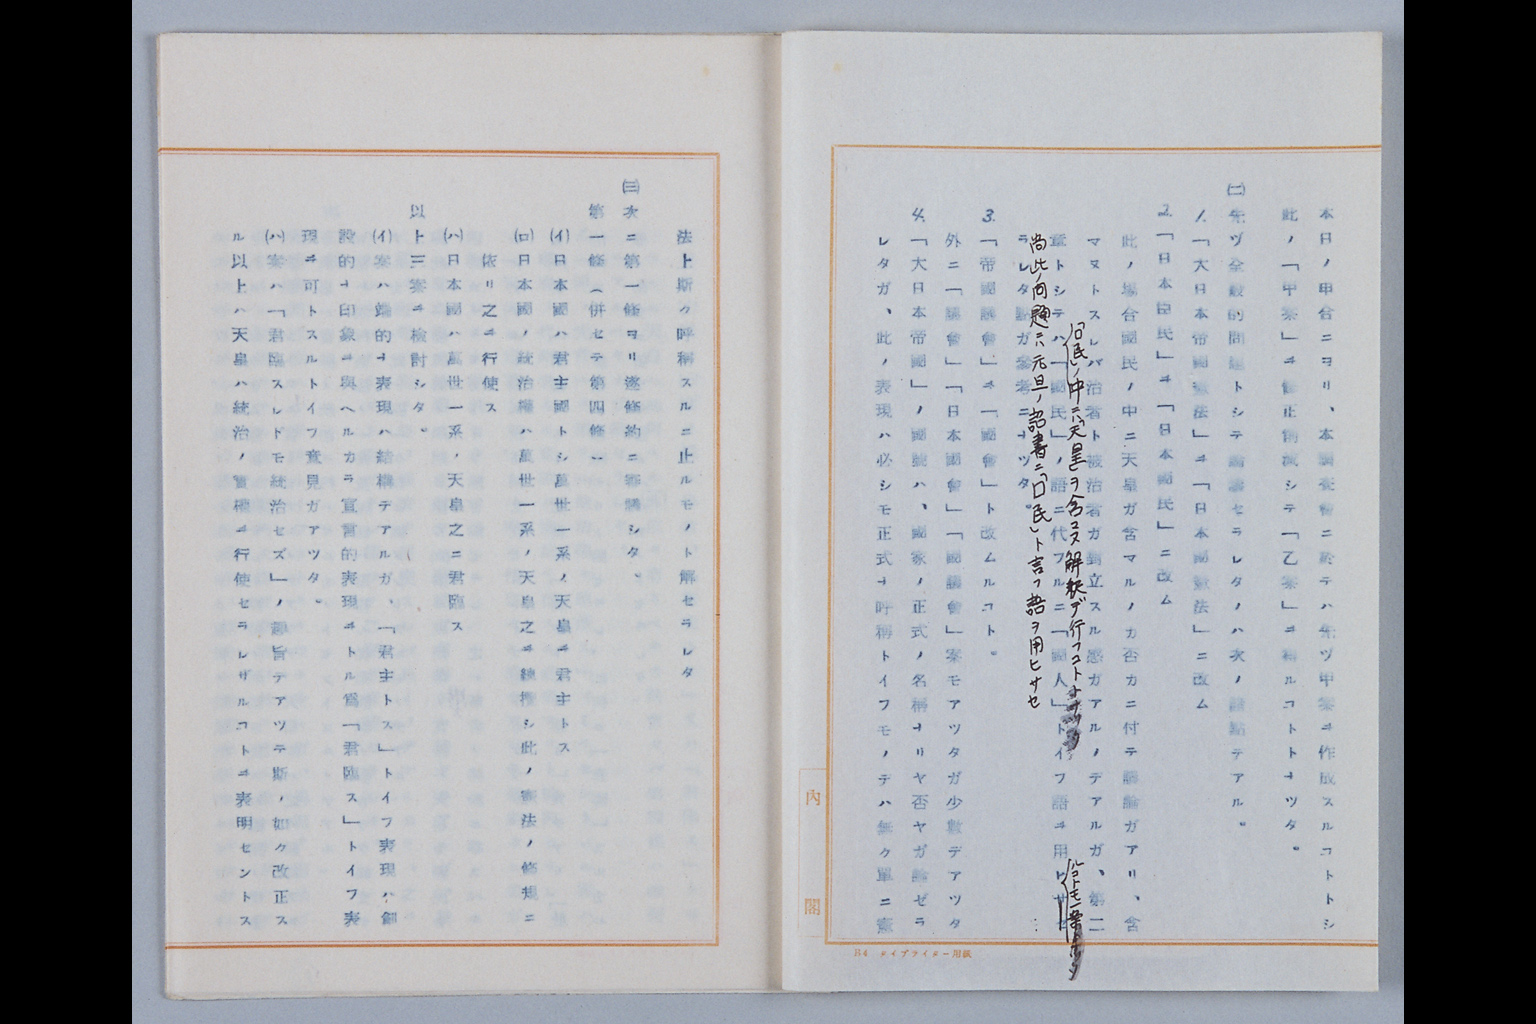 本日ノ申合ニヨリ、本調査會ニ於テハ先ヅ甲案ヲ作成スルコトトシ
此ノ「甲案」ヲ修正削減シテ「乙案」ヲ得ルコトトナツタ。
㈡先ヅ全般的問題トシテ論議セラレタノハ次ノ諸點デアル。
1.「大日本帝國憲法」ヲ「日本國憲法」ニ改ム
2.「日本臣民」ヲ「日本國民」ニ改ム
此ノ場合國民ノ中ニ天皇ガ含マルノカ否カニ付テ議論ガアリ、含
マヌトスレバ治者ト被治者ガ對立スル感ガアルノデアルガ、第二
「口民」ノ中ニハ天皇ヲ含コヌ解釈デ行フコト
章トシテハ「國民」ノ語ニ代フルニ「國人」トイフ語ヲ用ヒ
ルコトモ一案トホ
尚此ノ問題ニハ元旦ノ詔書ニ「口民」ト言フ語ヲ用ヒサセ
ラレタ點ガ參考ニナツタ。
3.「帝國議會」ヲ「國會」ト改ムルコト。
外ニ「議會」「日本國會」「國議會」案モアツタガ少數デアツタ
4.「大日本帝國」ノ國號ハ、國家ノ正式ノ名稱ナリヤ否ヤガ論ゼラ
レタガ、此ノ表現ハ必シモ正式ナ呼稱トイフモノデハ無ク單ニ憲
內閣
B4 タイプライター用紙
法上斯ク呼稱スルニ止ルモノト解セラレタ
㈢次ニ第一條ヨリ逐條約ニ審議シタ、
第一條(併セテ第四條)
(イ)日本國ハ君主國トシ萬世一系ノ天皇ヲ君主トス
(ロ)日本國ノ統治權ハ萬世一系ノ天皇之ヲ總攬シ此ノ憲法ノ條規ニ
依リ之ヲ行使ス
(ハ)日本國ハ萬世一系ノ天皇之ニ君臨ス
以上三案ヲ檢討シタ。
(イ)案ハ端的ナ表現ハ結構デアルガ、「君主トス」トイフ表現ハ創
設的ナ印象ヲ與ヘルカラ宣言的表現ヲトル爲「君臨ス」トイフ表
現ヲ可トスルトイフ意見ガアツタ。
(ハ)案ハ「君臨スレドモ統治セズ」ノ趣旨デアツテ斯ノ如ク改正ス
ル以上ハ天皇ハ統治ノ實權ヲ行使セラレザルコトヲ表明セントス